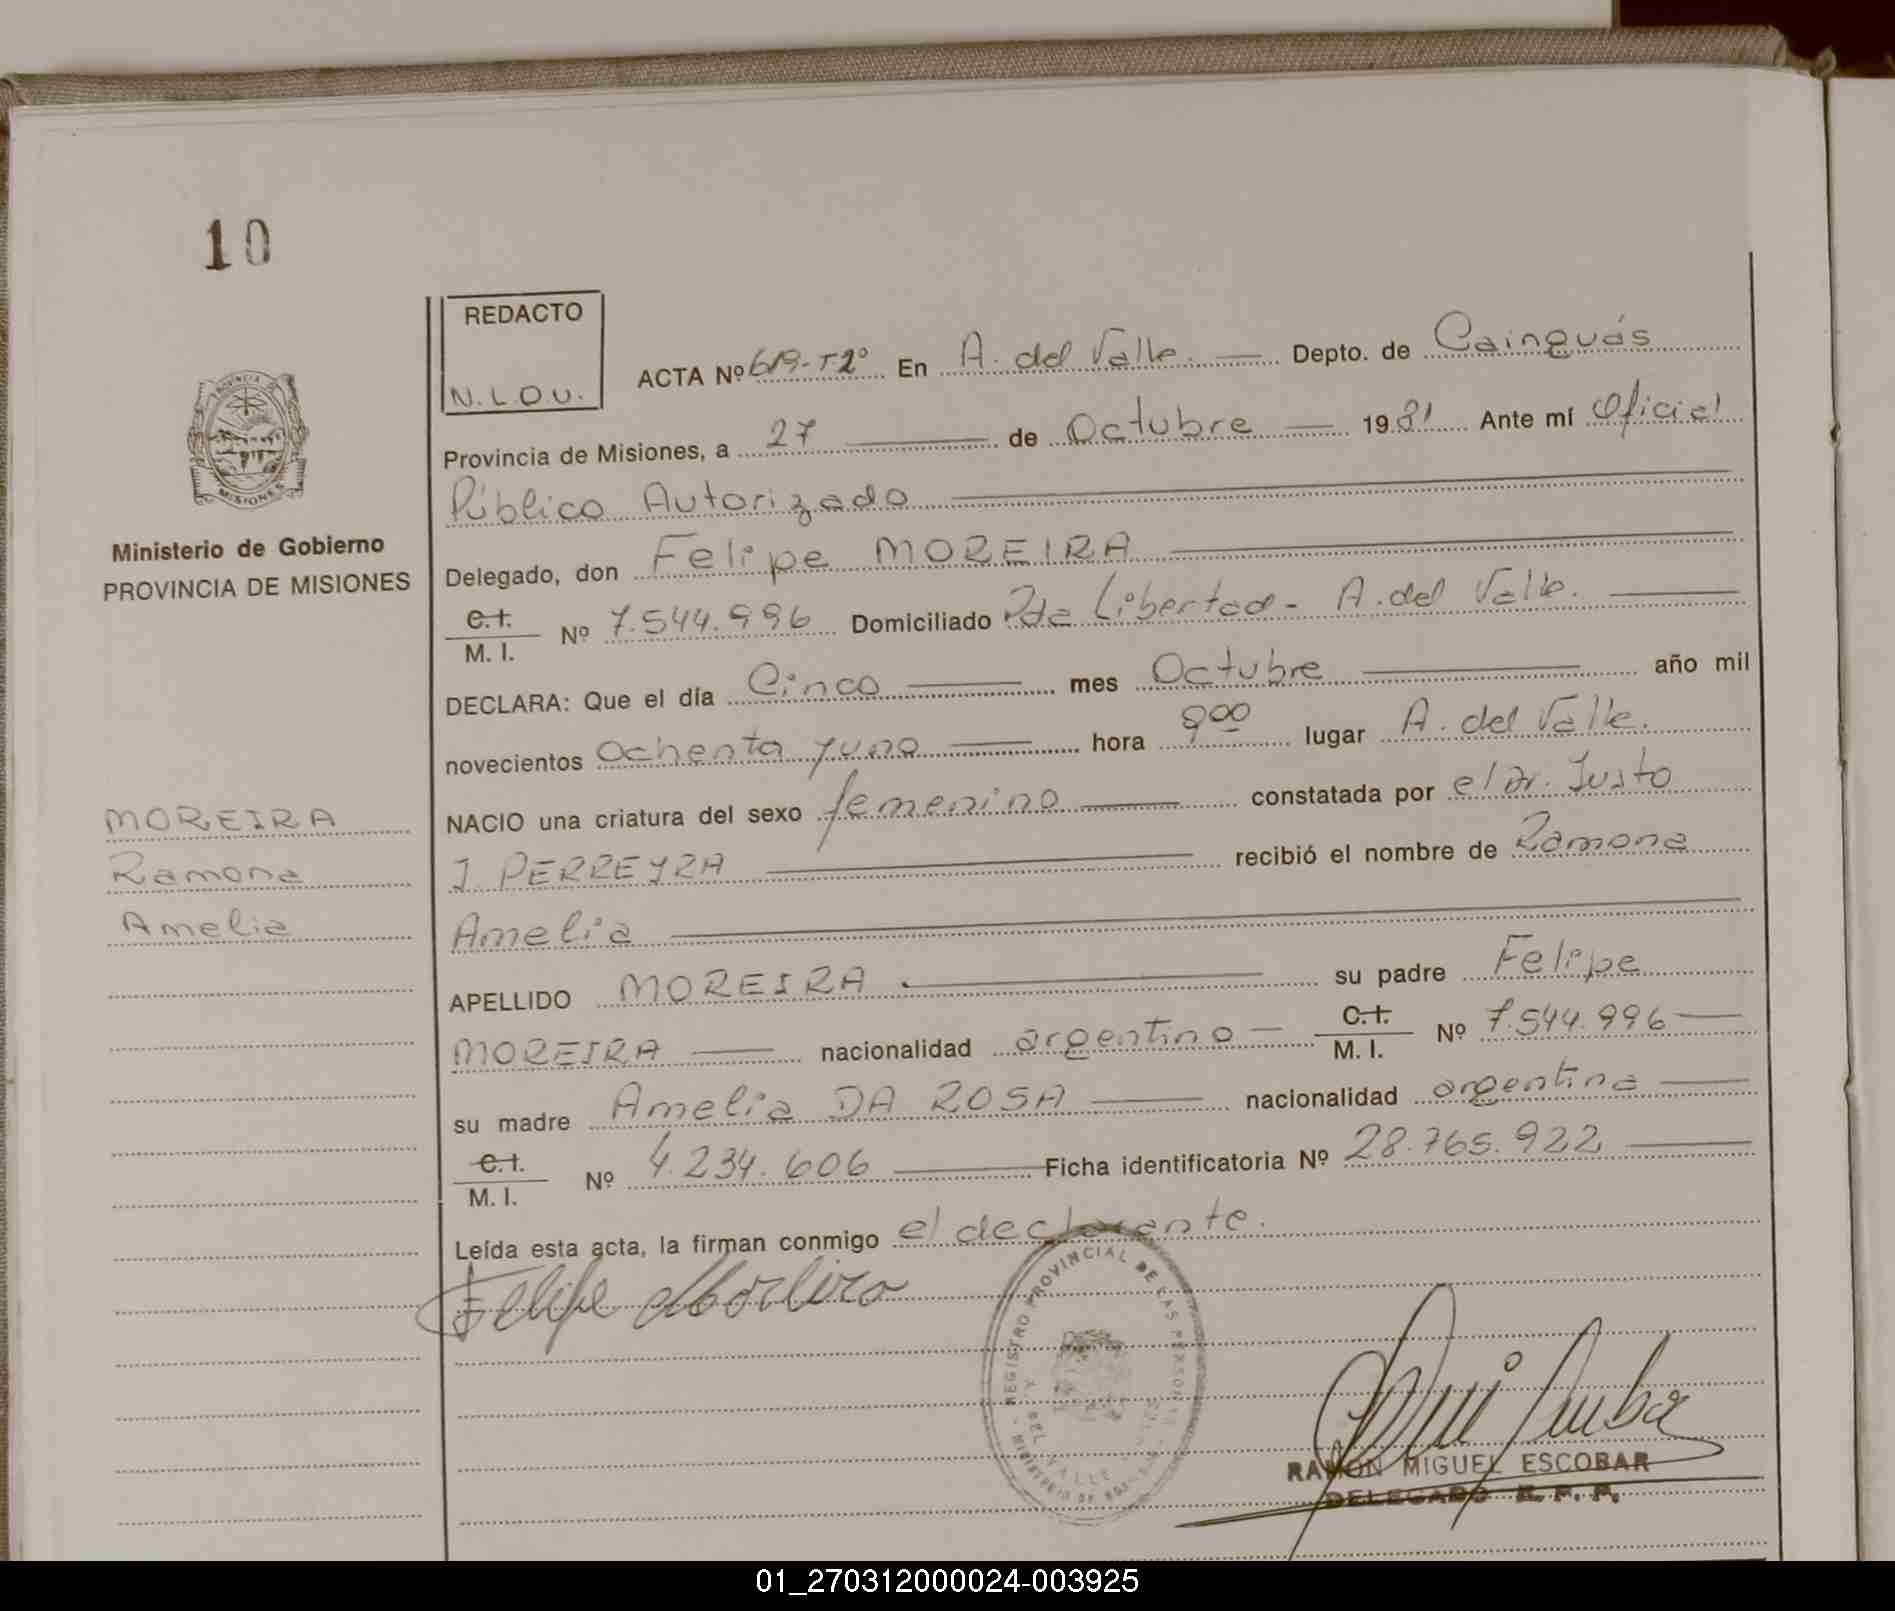 10
REDACTO
N.L.O.U.
ACTA Nº 619-T2º En A. del Valle. Depto. de Cainguás
Provincia de Misiones, a 27 de Octubre 1981 Ante mí Oficial
Público Autorizado
PROVINCIA DE
MISIONES
Ministerio de Gobierno
PROVINCIA DE MISIONES
Delegado, don Felipe MOREIRA
C.I. M. I. Nº 7.544.996 Domiciliado Pda Libertad - A. del Valle.
DECLARA: Que el día Cinco mes Octubre año mil
novecientos ochenta y uno hora 9ºº lugar A. del Valle.
NACIO una criatura del sexo femenino constatada por el Dr. Justo
J. PERREYRA recibió el nombre de Ramona
Amelia
APELLIDO MOREIRA su padre Felipe
MOREIRA nacionalidad argentino C.I. M. I. Nº 7.544.996
su madre Amelia DA ROSA nacionalidad argentina
C.I. M. I. Nº 4.234.606 Ficha identificatoria Nº 28.765.922
Leída esta acta, la firman conmigo el declarante.
MOREIRA
Ramona
Amelia
Felipe Moreira
REGISTRO PROVINCIAL DE LAS PERSONAS
DEL VALLE
MINISTERIO DE
RAMON MIGUEL ESCOBAR
DELEGADO R. P. P.
01_270312000024-003925